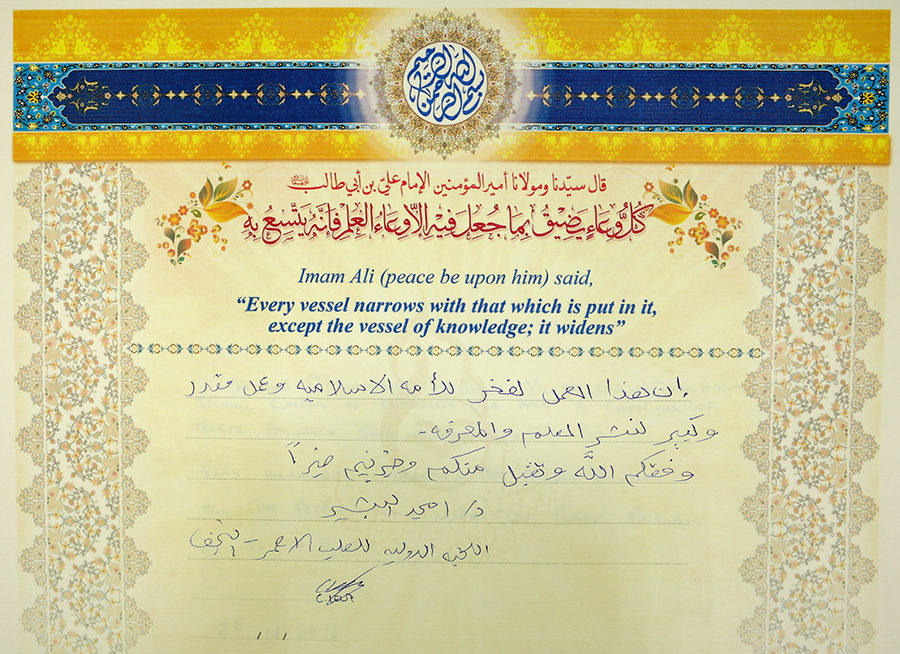 بسم الله الرحمن الرحيم
قال سيّدنا ومولانا أمير المؤمنين الإمام عليّ بن أبي طالب
كُلُّ وِعَاءٍ يَضِيقُ بِمَا جُعِلَ فِيهِ إِلَّا وِعَاءَ العِلْمِ فَإِنَّهُ يَتَّسِعُ بِهِ
Imam Ali (peace be upon him) said,
“Every vessel narrows with that which is put in it,
except the vessel of knowledge; it widens”
إن هذا العمل لفخر للأمه الاسلاميه وعمل مقدر
وكبير لنشر العلم والمعرفه -
وفقكم الله وتقبل منكم وجزيتم خيراً
د/ امجد البشير
اللجنه الدوليه للصليب الاحمر - النجف
/ /